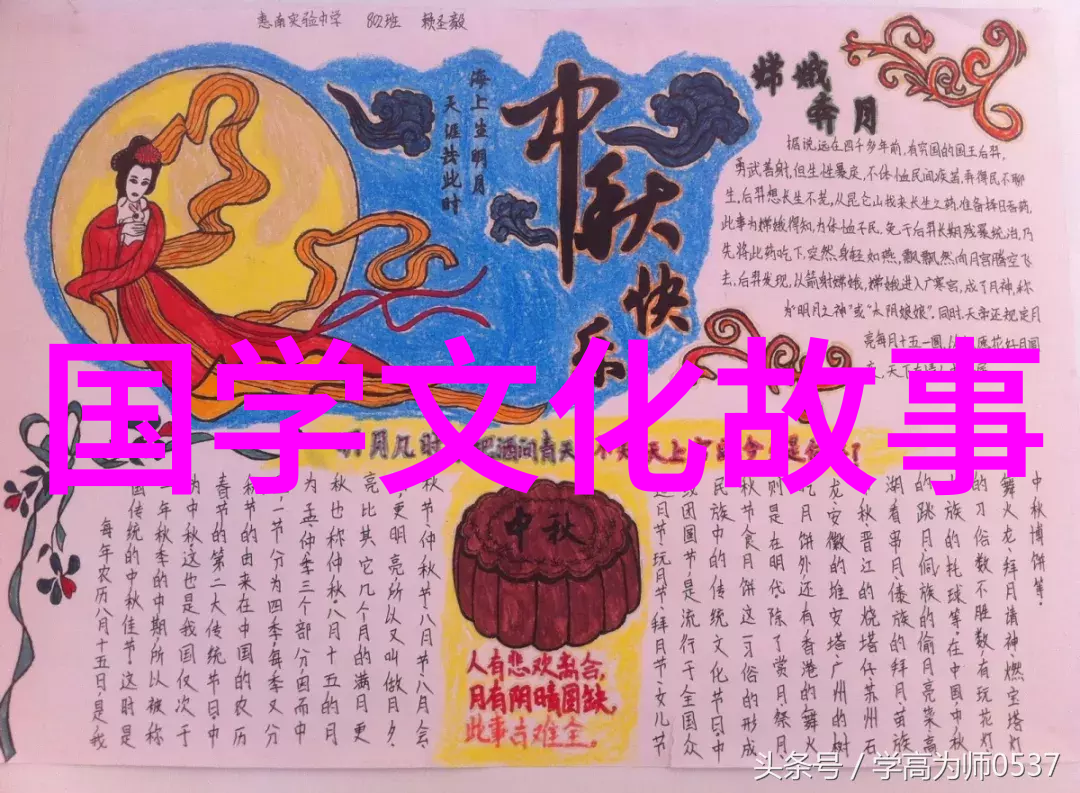 惠南实验中学 802班 赖圣毅
中秋快乐
海上生明月
天涯共此时
嫦娥
奔月
据说,远在四千多年前,有穷国的国王后羿,
勇武善射,但生性暴戾,不体恤民间疾苦,弄得民不聊
生,后羿想长生不老,从昆仑山找来长生之药,准备择日吞药,
此事为嫦娥得知,为体恤平民,免于后羿长期残暴统治,乃
先将此药吃下,突然,身轻如燕,飘飘然向月宫腾空飞
去,后羿发现,以箭射嫦娥,嫦娥进入广寒宫,成了月神,称
为“明月之神”或“太阴娘娘”。同时,天帝还规定月
亮每月十五一圆,
国学文化故事
每年农历八月十五日,是我
国传统的中秋佳节。这时是
一年秋季的中期,所以被称
为中秋。这也是我国仅次于
春节的第二大传统节日。中
秋节的由来在中国的农历
一节分为四季,每季又分
为孟、仲、季三个部分,因而中
秋也称仲秋。八月十五的月
亮比其它几个月的满月更
更明亮,所以又叫做月夕、
秋节、仲秋节、八月节、八月会
中秋
人有悲欢离合,
月有阴晴圆缺,
此事古难全。
追月节、玩月节、拜月节、女儿节
或团圆节,是流行于全国众
民族中的传统文化节日。中
秋节食月饼这一习俗的形成
则是在明代。除了赏月、祭月、
吃月饼外,还有香港的舞火
龙、安徽的堆宝塔、广州的树
中秋、晋江的烧塔仔、苏州石
湖看串月、傣族的拜月、苗族
的跳月、侗族的偷月亮菜、高
族的托球等。在中国,中秋
的习俗数不胜数,有玩花灯、
舞火龙、拜月请神、燃宝塔灯
中秋博饼等。
头条号 / 学高为师0537